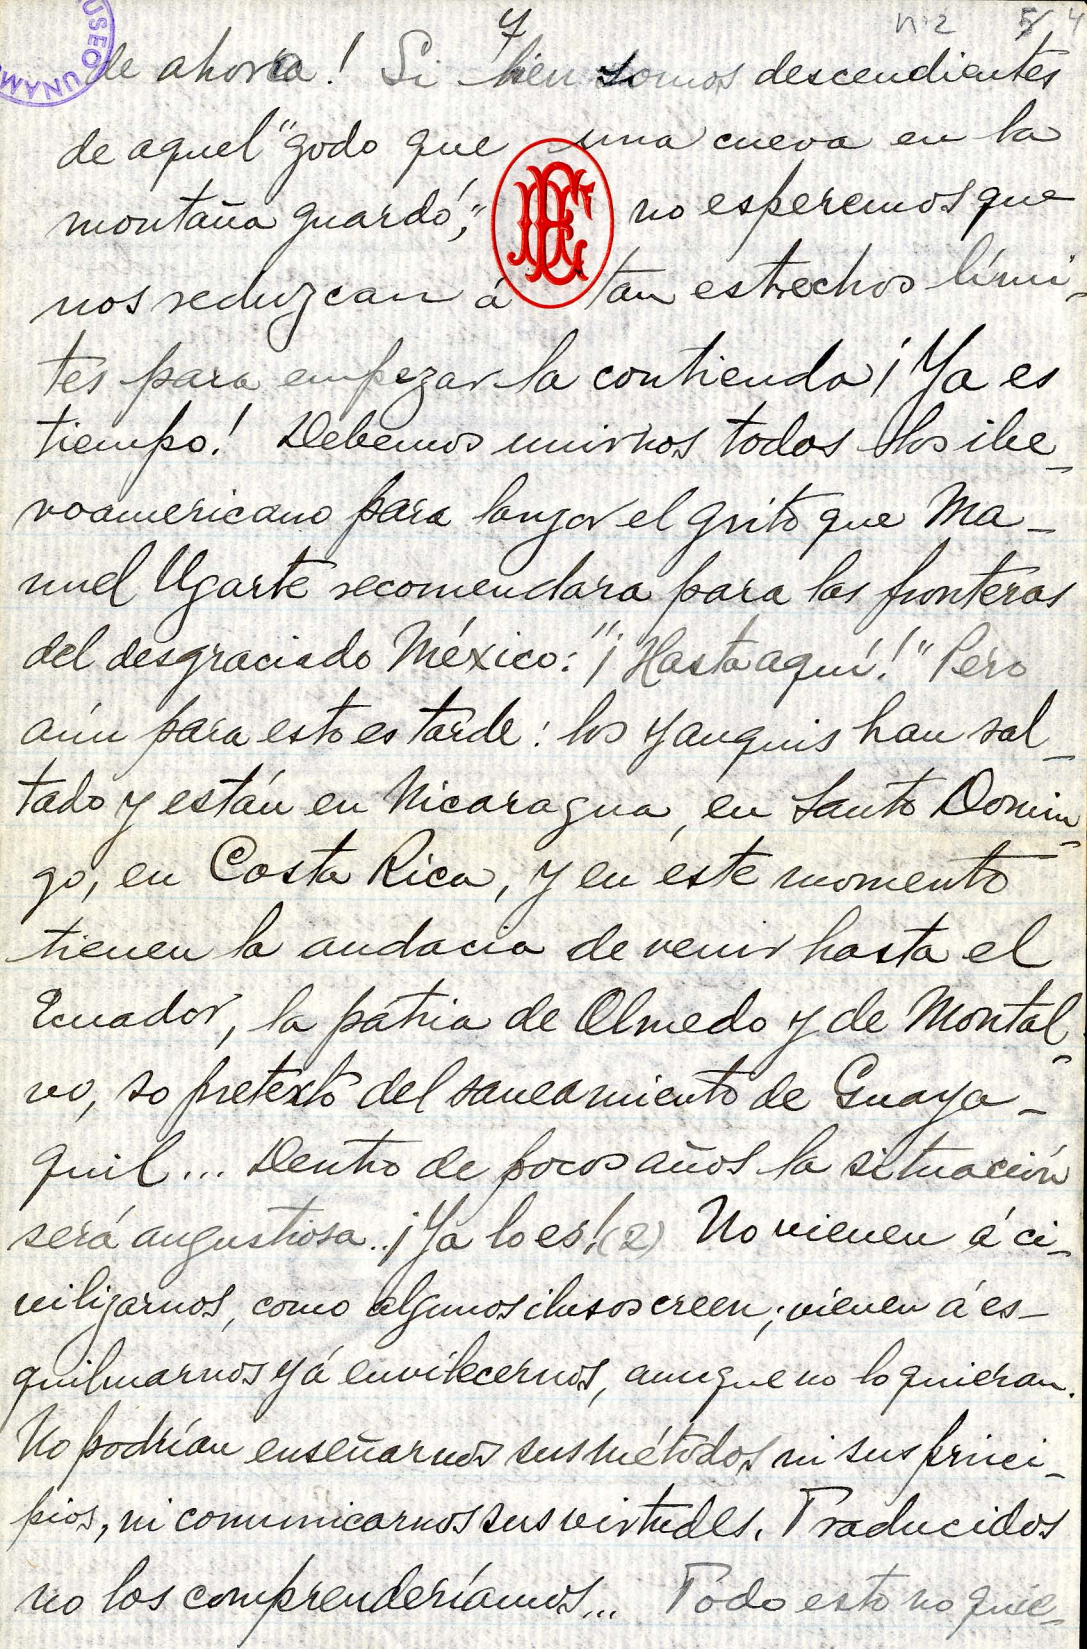 7
n·2 5/ 4
USEO UNAM
de ahora! Si bien somos descendientes
de aquel "godo que una cueva en la
montaña guardó", no esperemos que
nos reduzcan á tan estrechos lími-
tes para empezar la contienda ¡Ya es
tiempo! Debemos unirnos todos los ibe-
roamericano para lanzar el grito que Ma-
nuel Ugarte recomendara para las fronteras
del desgraciado México: "¡Hasta aquí!" Pero
aún para esto es tarde: los yanquis han sal-
tado y están en Nicaragua, en Santo Domin-
go, en Costa Rica, y en este momento
tienen la audacia de venir hasta el
Ecuador, la patria de Olmedo y de Montal-
vo, so pretexto del saneamiento de Guaya-
quil... Dentro de pocos años la situación
será angustiosa.. ¡Ya lo es! (2) No vienen á ci-
vilizarnos, como algunos ilusos creen; vienen á es-
quilmarnos y á envilecernos, aunque no lo quieran.
No podrían enseñarnos sus métodos ni sus princi-
pios, ni comunicarnos sus virtudes. Traducidos
no los comprenderíamos... Todo esto no quie-